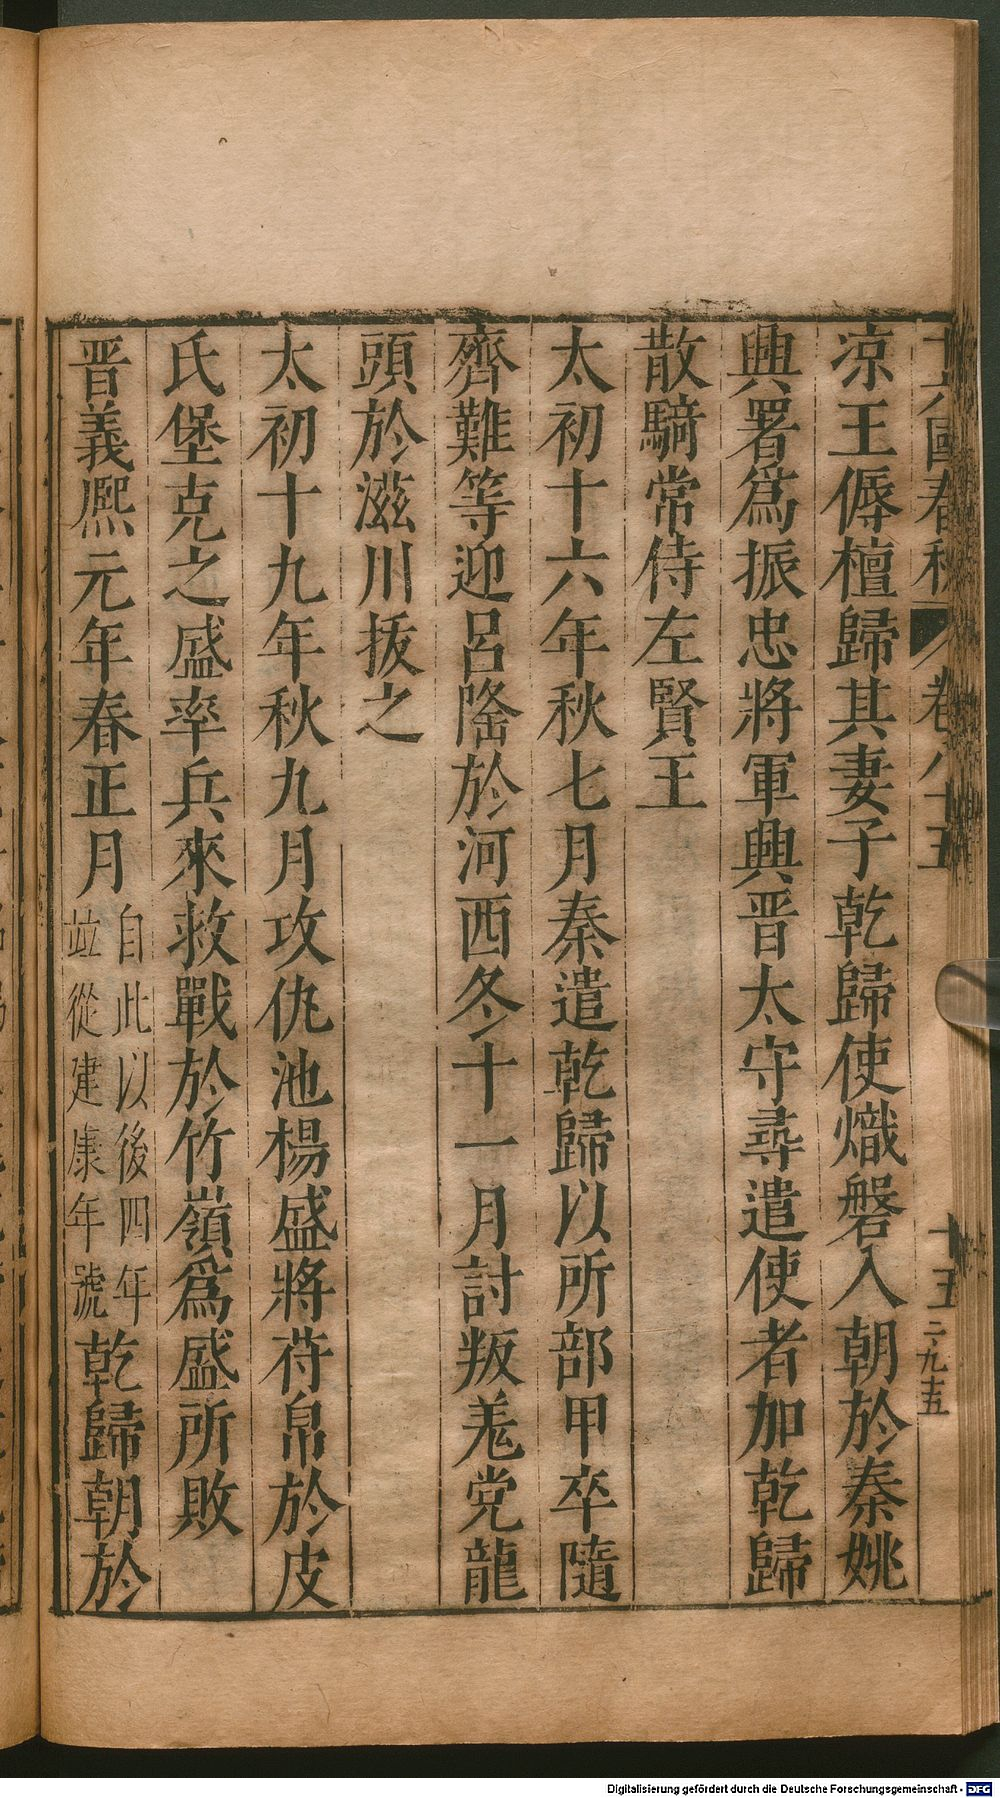 十六國春秋 卷八十五 十五 二九十五
凉王傉檀歸其妻子乾歸使熾磐入朝於秦姚
興署爲振忠將軍興晋太守尋遣使者加乾歸
散騎常侍左賢王
太初十六年秋七月秦遣乾歸以所部甲卒隨
齊難等迎呂隆於河西冬十一月討叛羌党龍
頭於滋川拔之
太初十九年秋九月攻仇池楊盛將苻帛於皮
氏堡克之盛率兵來救戰於竹嶺爲盛所敗
晋義熈元年春正月自此以後四年竝從建康年號乾歸朝於
Digitalisierung gefördert durch die Deutsche Forschungsgemeinschaft - DFG